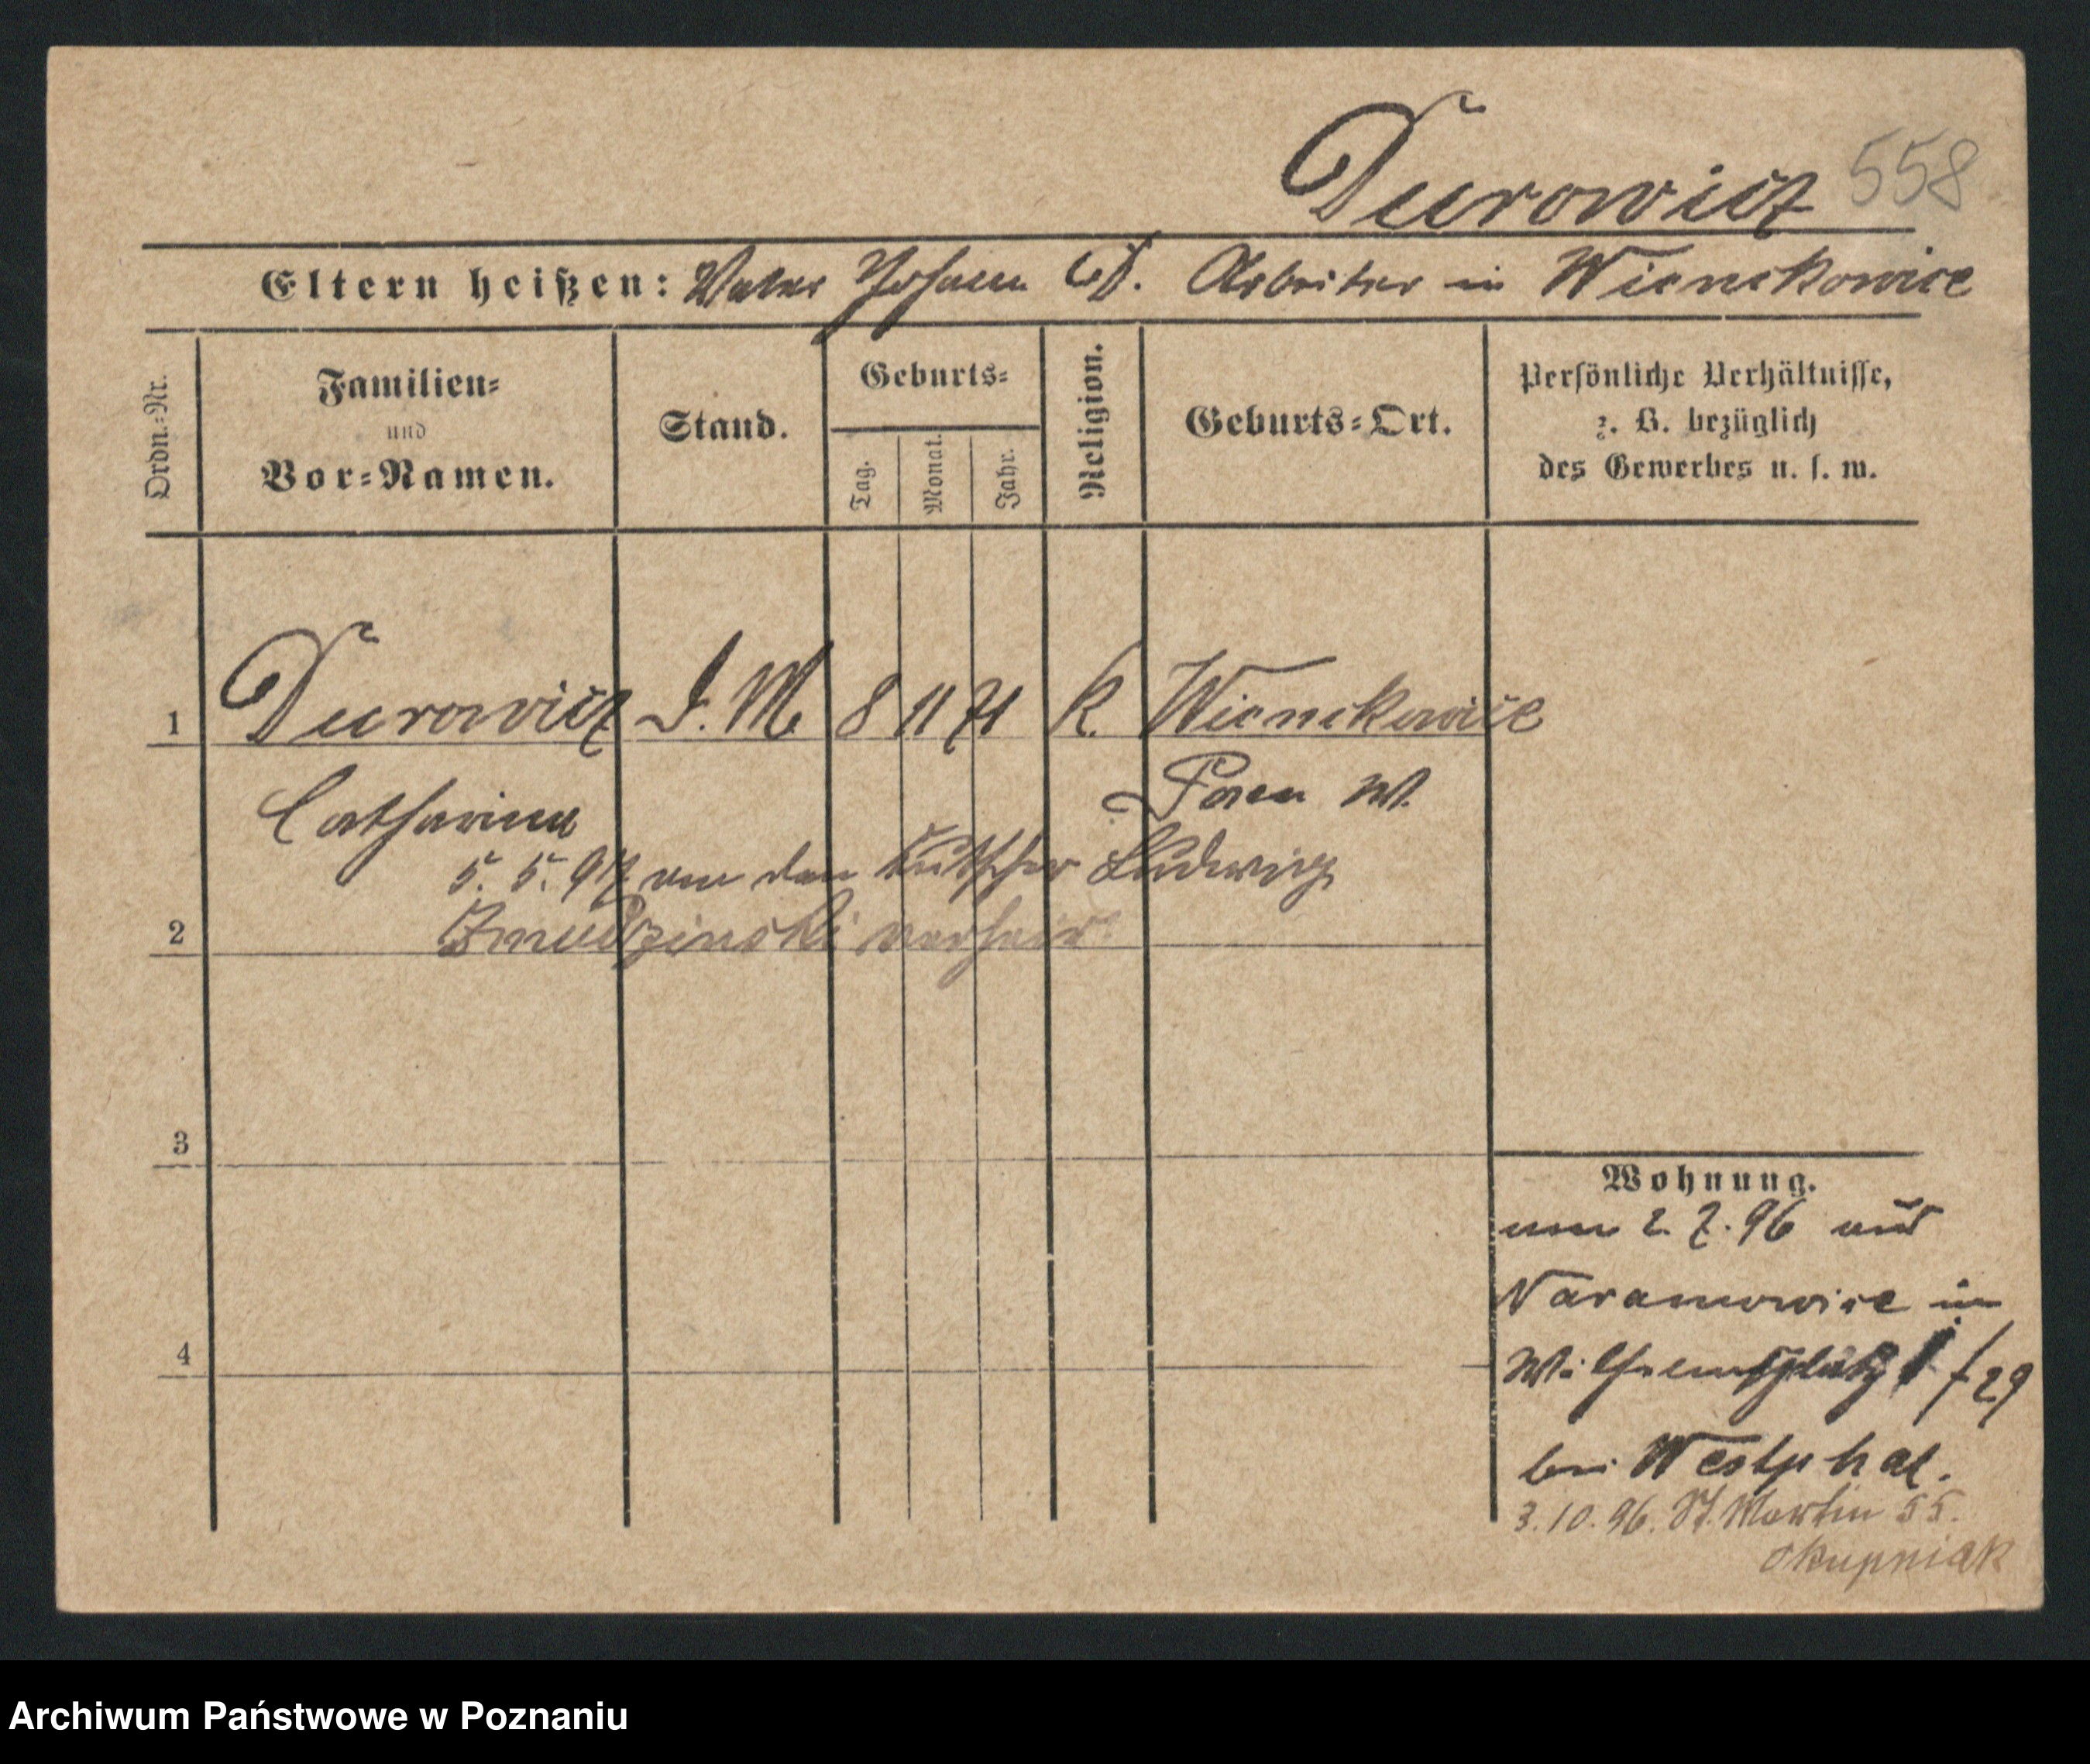 Durowicz 558
Eltern heißen: Vater Johann D. Arbeiter in Wienckowice
Ordn.-Nr.
Familien-
und
Vor-Namen.
Stand.
Geburts-
Tag.
Monat.
Jahr.
Religion.
Geburts-Ort.
Persönliche Verhältnisse,
z. B. bezüglich
des Gewerbes u. s. w.
1 Durowicz D. M. 8 11 71 K. Wienckowice
Catharina Posen W.
5. 5. 97 an den Kutscher Ludwig
2 Zmudzinski verheir.
3
4
Wohnung.
am 2. 7. 96 aus
Naramowice in
Wilhelmsplatz 29
bei Westphal.
3. 10. 96. St. Martin 55.
Skupniak
Archiwum Państwowe w Poznaniu